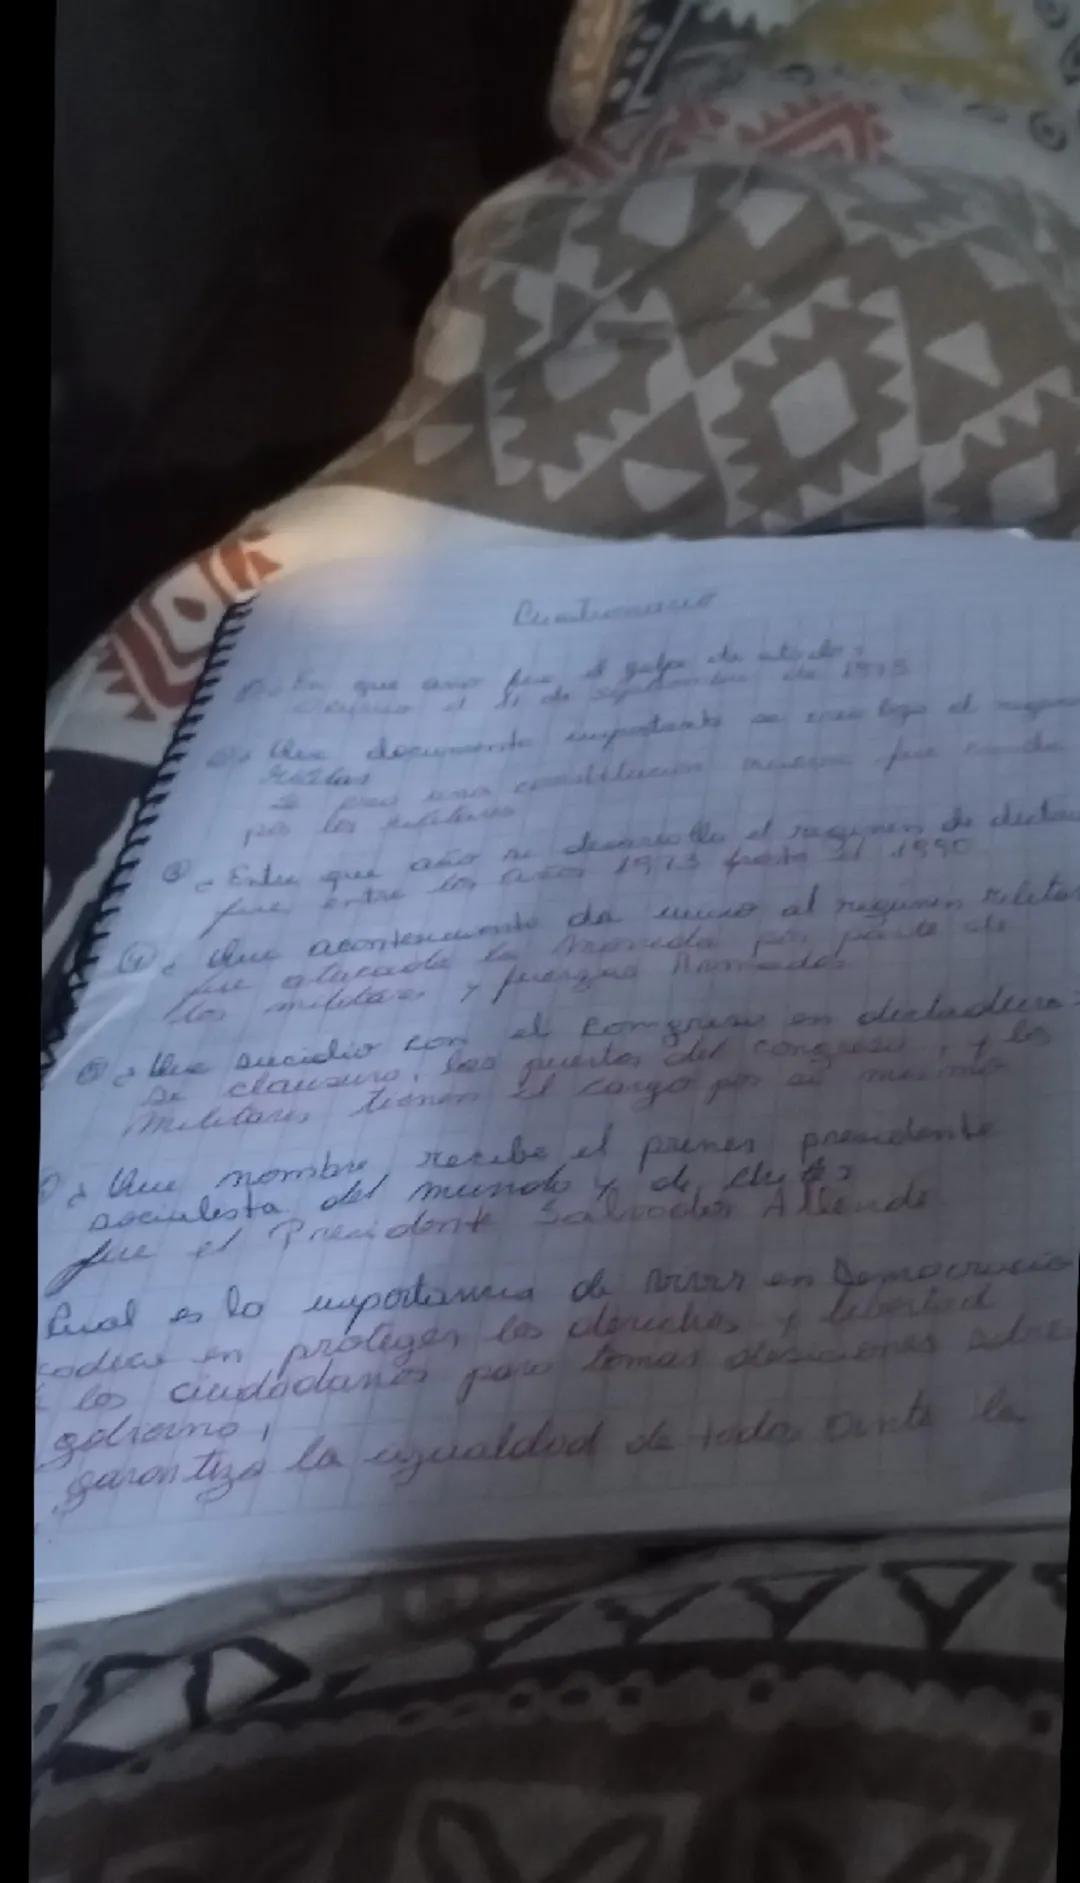 Cuestionario
En que año fue el golpe de estado?
el 11 de septiembre de 1973
② ¿Que documento importante se creo bajo el
militar
Se creo una constitucion nueva fue
por los militares
③ ¿Entre que año se desarrollo el regimen de
fue entre los años 1973 hasta el 1990
④ ¿Que acontecimiento da inicio al regimen
fue atacada la moneda por parte de
los militares y fuerzas Armadas
⑤ ¿Que sucidio con el congreso en dictadura?
se clausuro, las puertas del congreso, y los
militares tienen el cargo por si mismo
¿Que nombre recibe el primer presidente
socialista del mundo y de
fue el Presidente Salvador Allende
Cual es la importancia de vivir en Democracia
en proteger los derechos y libertad
los ciudadanos para tomar desiciones
gobierno,
garantiza la igualdad de todos ante la